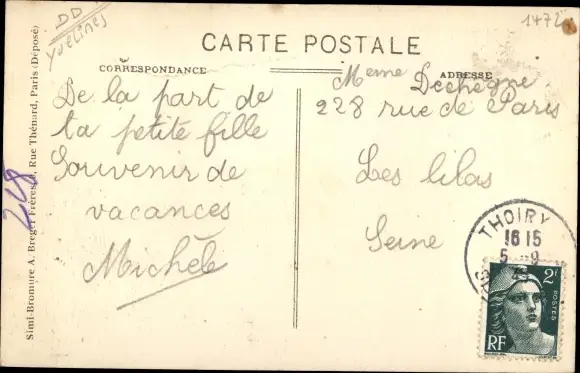 DD
YVELINES
1472
CARTE POSTALE
CORRESPONDANCE
ADRESSE
De la part de
ta petite fille
Souvenir de
vacances
Michèle
Meme Dechêgne
228 rue de Paris
Les lilas
Seine
THOIRY
16 15
5 - 9
2F
POSTES
RF
248
Simi-Bromure A. Breger Frères, Rue Thénard, Paris (Déposé)